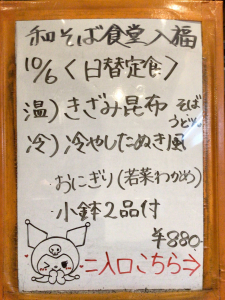 和そば食堂入福
10/6〈日替定食〉
温)きざみ昆布 そばうどん
冷)冷やしたぬき風
おにぎり(若菜わかめ)
小鉢2品付
¥880
入口こちら→